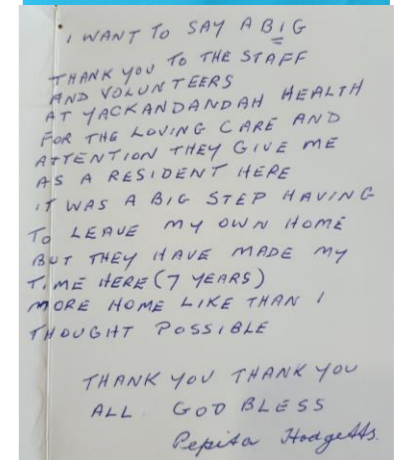 I WANT TO SAY A BIG
THANK YOU TO THE STAFF
AND VOLUNTEERS
AT YACKANDANDAH HEALTH
FOR THE LOVING CARE AND
ATTENTION THEY GIVE ME
AS A RESIDENT HERE
IT WAS A BIG STEP HAVING
TO LEAVE MY OWN HOME
BUT THEY HAVE MADE MY
TIME HERE (7 YEARS)
MORE HOME LIKE THAN I
THOUGHT POSSIBLE
THANK YOU THANK YOU
ALL. GOD BLESS
Pepita Hodgetts.